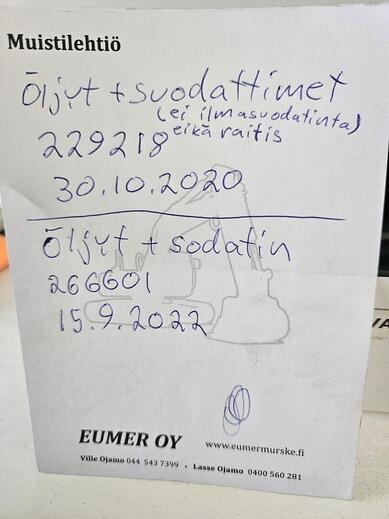 Muistilehtiö
Öljyt + suodattimet
(ei ilmasuodatinta)
eikä raitis
229218
30.10.2020
Öljyt + sodatin
266601
15.9.2022
EUMER OY
www.eumermurske.fi
Ville Ojamo 044 543 7399 , Lasse Ojamo 0400 560 281